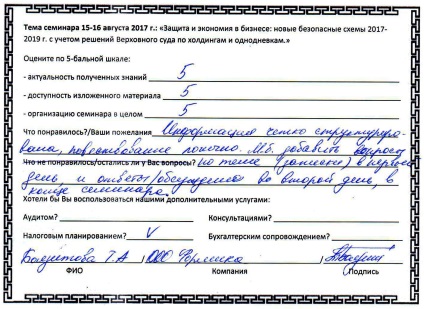 Тема семинара 15-16 августа 2017 г.: «Защита и экономия в бизнесе: новые безопасные схемы 2017-
2019 г. с учетом решений Верховного суда по холдингам и однодневкам.»
Оцените по 5-бальной шкале:
- актуальность полученных знаний 5
- доступность изложенного материала 5
- организацию семинара в целом 5
Что понравилось?/Ваши пожелания Информация четко структуриро-
вана, повествование понятно. М.б. добавить вопросы
Что не понравилось/остались ли у Вас вопросы? по теме (записки) в первый
день, и ответы/обсуждения во второй день, в
конце семинара.
Хотели бы Вы воспользоваться нашими дополнительными услугами:
Аудитом? Консультациями?
Налоговым планированием? V Бухгалтерским сопровождением?
Т.А ООО
ФИО Компания Подпись